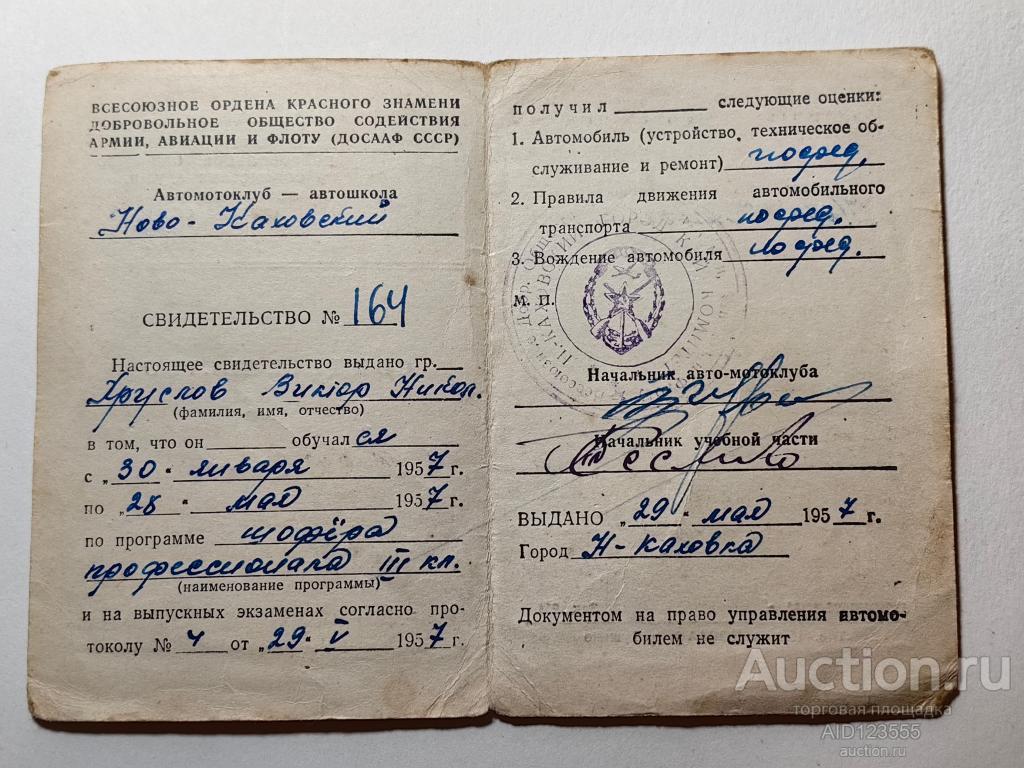 ВСЕСОЮЗНОЕ ОРДЕНА КРАСНОГО ЗНАМЕНИ
ДОБРОВОЛЬНОЕ ОБЩЕСТВО СОДЕЙСТВИЯ
АРМИИ, АВИАЦИИ И ФЛОТУ (ДОСААФ СССР)
Автомотоклуб — автошкола
Ново-Каховский
СВИДЕТЕЛЬСТВО № 164
Настоящее свидетельство выдано гр.
Хруслов Виктор Никол.
(фамилия, имя, отчество)
в том, что он обучался
с „30" января 1957 г.
по „28" мая 1957 г.
по программе шофёра
профессионала III кл.
(наименование программы)
и на выпускных экзаменах согласно про-
токолу № 4 от „29" V 1957 г.
получил следующие оценки:
1. Автомобиль (устройство, техническое об-
служивание и ремонт) посред.
2. Правила движения автомобильного
транспорта посред.
3. Вождение автомобиля посред.
М. П.
Начальник авто-мотоклуба
Начальник учебной части
ВЫДАНО „29" мая 1957 г.
Город Н-Каховка
Документом на право управления автомо-
билем не служит
Auction.ru
торговая площадка
AID123555
auction.ru